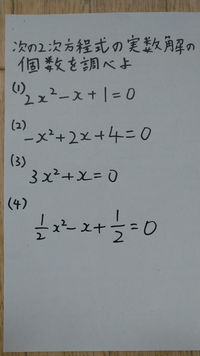 次の2次方程式の実数解の
個数を調べよ
(1)
2x²-x+1=0
(2)
-x²+2x+4=0
(3)
3x²+x=0
(4)
1/2 x²-x+1/2=0